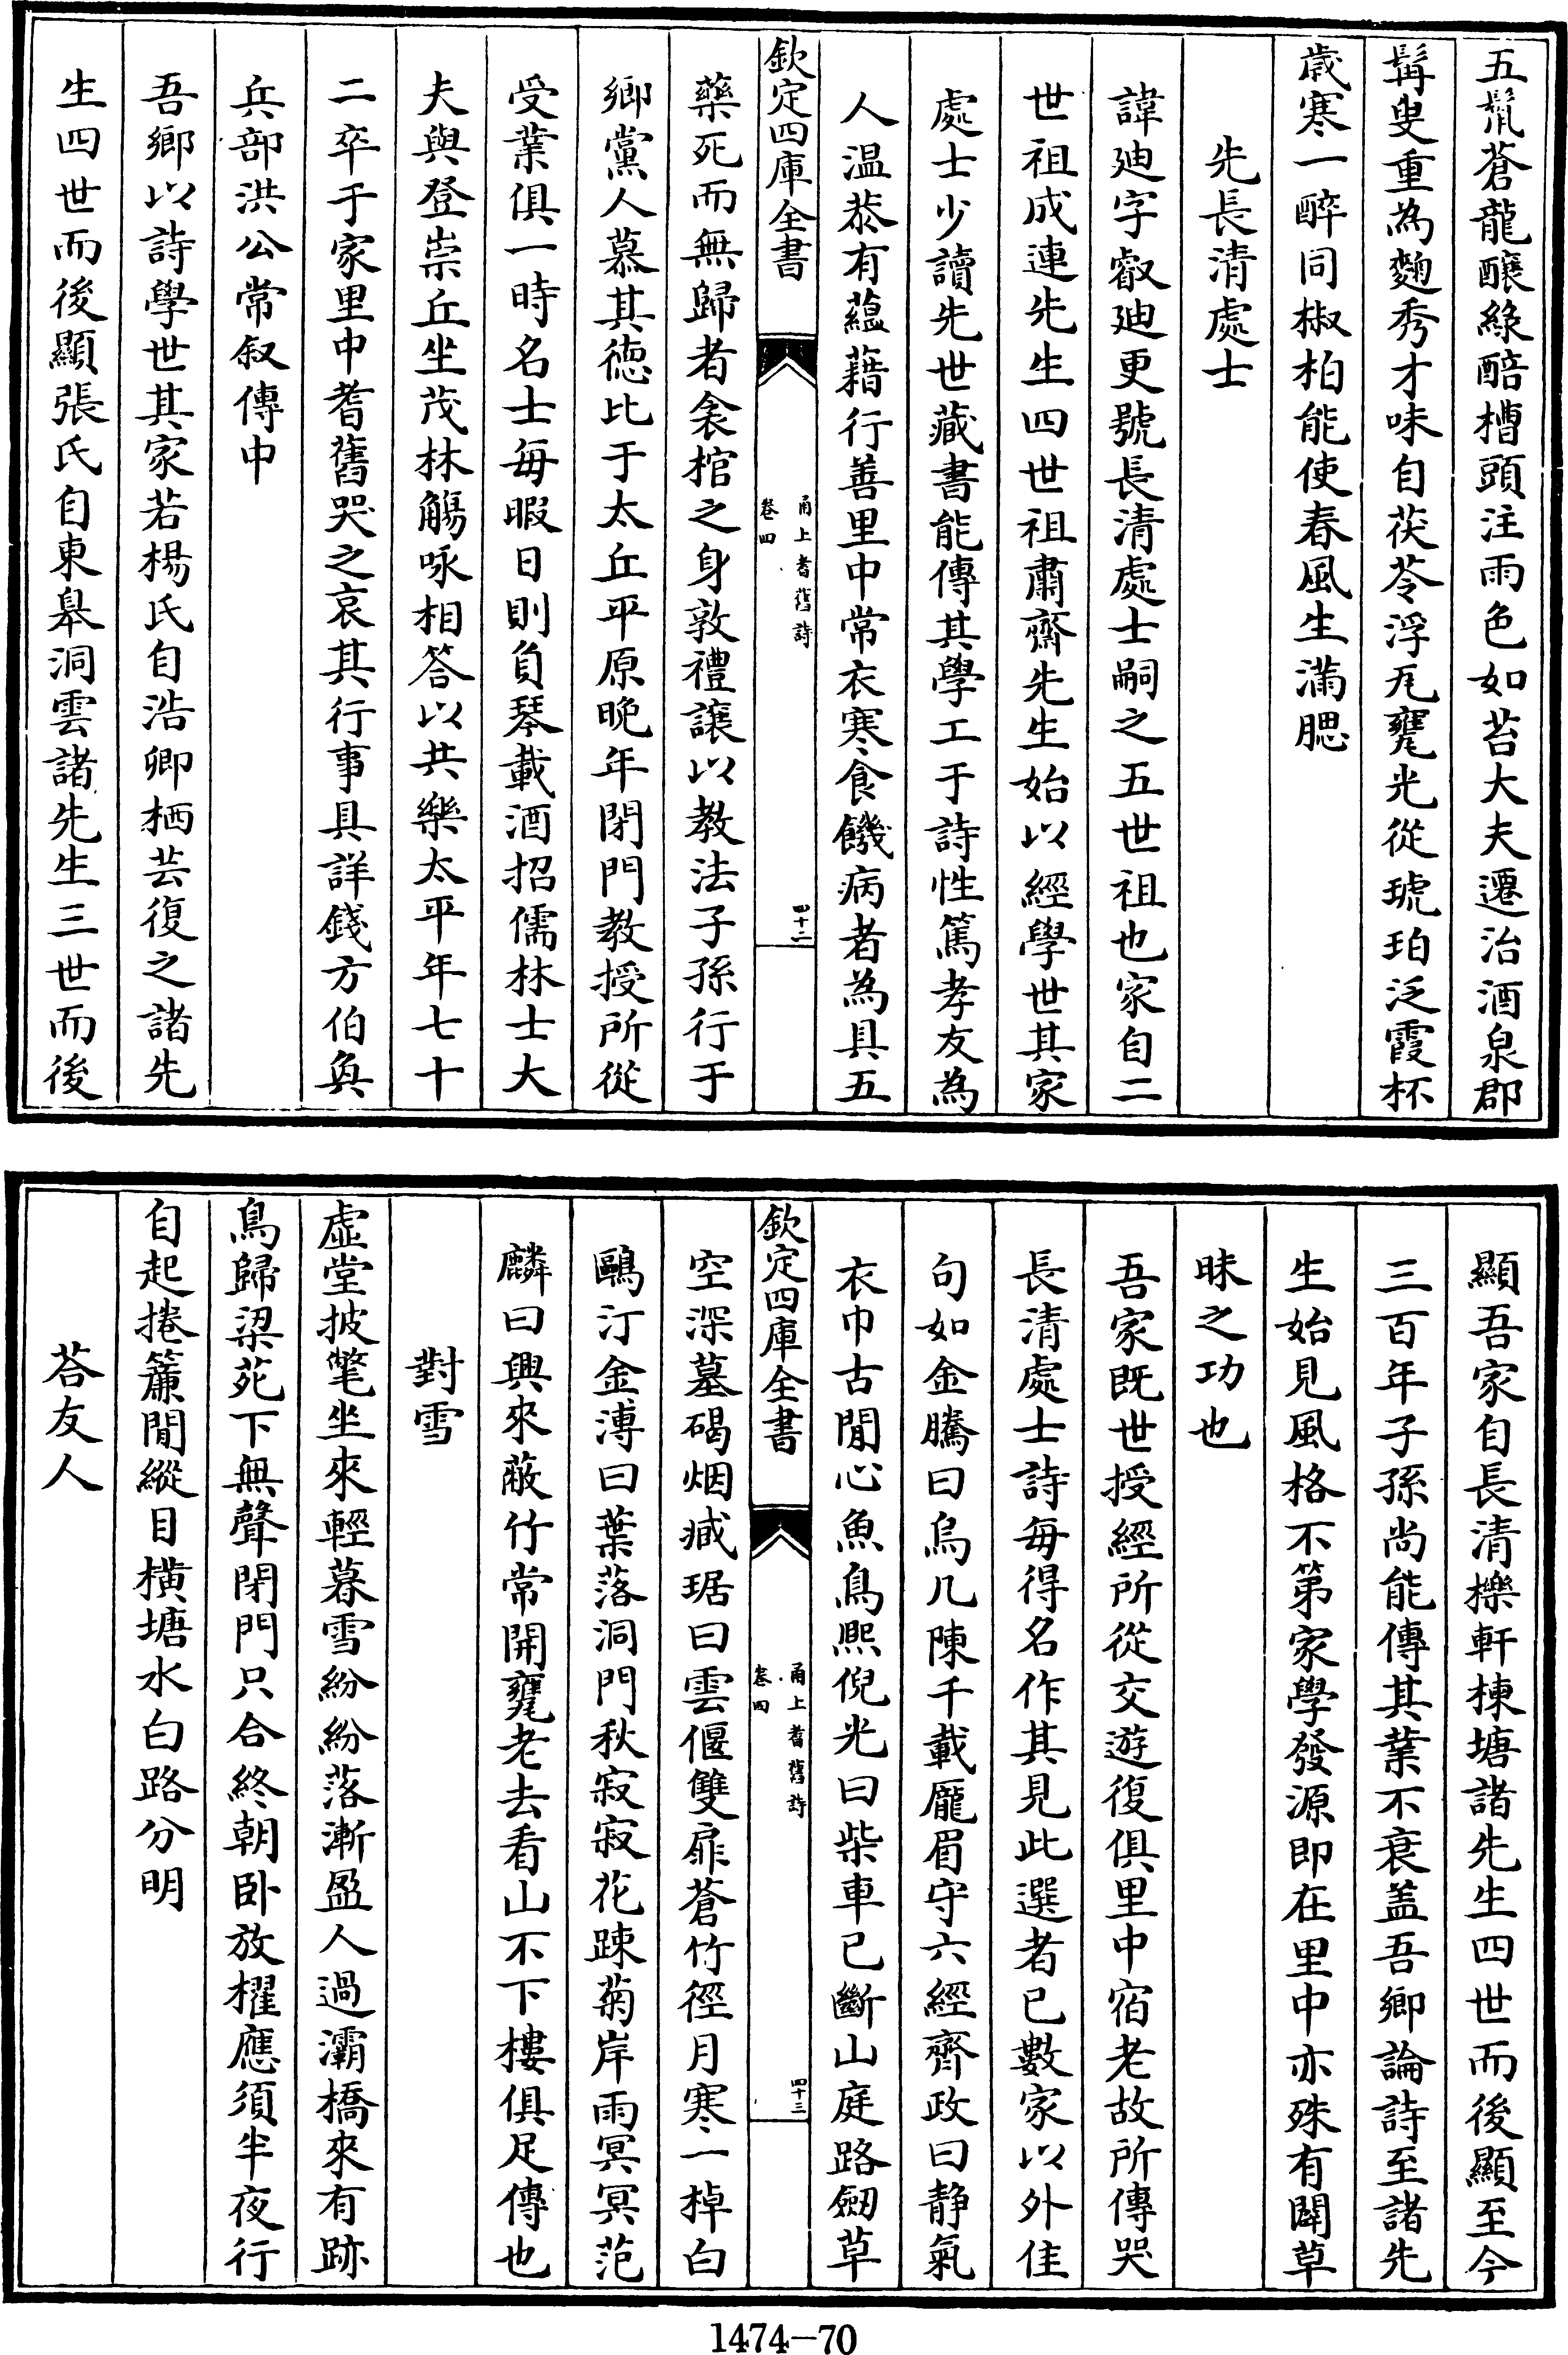 五鬛蒼龍釀綠醅槽頭注雨色如苔大夫遷治酒泉郡
髯叟重為麴秀才味自茯苓浮瓦甕光從琥珀泛霞杯
歳寒一醉同椒柏能使春風生滿腮
先長清處士
諱廸字叡廸更號長清處士嗣之五世祖也家自二
世祖成連先生四世祖肅齋先生始以經學世其家
處士少讀先世藏書能傳其學工于詩性篤孝友為
人温恭有藴藉行善里中常衣寒食饑病者為具五
欽定四庫全書
甬上耆舊詩
卷四
四十二
藥死而無歸者衾棺之身敦禮讓以教法子孫行于
鄉黨人慕其德比于太丘平原晩年閉門教授所從
受業俱一時名士每暇日則負琴載酒招儒林士大
夫與登崇丘坐茂林觴咏相答以共樂太平年七十
二卒于家里中耆舊哭之哀其行事具詳錢方伯奐
兵部洪公常叙傳中
吾鄉以詩學世其家若楊氏自浩卿栖芸復之諸先
生四世而後顯張氏自東臯洞雲諸先生三世而後
顯吾家自長清櫟軒棟塘諸先生四世而後顯至今
三百年子孫尚能傳其業不衰盖吾鄉論詩至諸先
生始見風格不第家學發源即在里中亦殊有闢草
昧之功也
吾家既世授經所從交遊復俱里中宿老故所傳哭
長清處士詩每得名作其見此選者已數家以外佳
句如金騰曰烏几陳千載龎眉守六經齊政曰静氣
衣巾古閒心魚鳥熙倪光曰柴車已斷山庭路劒草
欽定四庫全書
甬上耆舊詩
卷四
四十三
空深墓碣烟臧琚曰雲偃雙扉蒼竹徑月寒一棹白
鷗汀金溥曰葉落洞門秋寂寂花踈菊岸雨冥冥范
麟曰興來蔽竹常開甕老去看山不下樓俱足傳也
對雪
虛堂披氅坐來輕暮雪紛紛落漸盈人過灞橋來有跡
鳥歸梁苑下無聲閉門只合終朝卧放櫂應須半夜行
自起捲簾閒縱目橫塘水白路分明
荅友人
1474-70